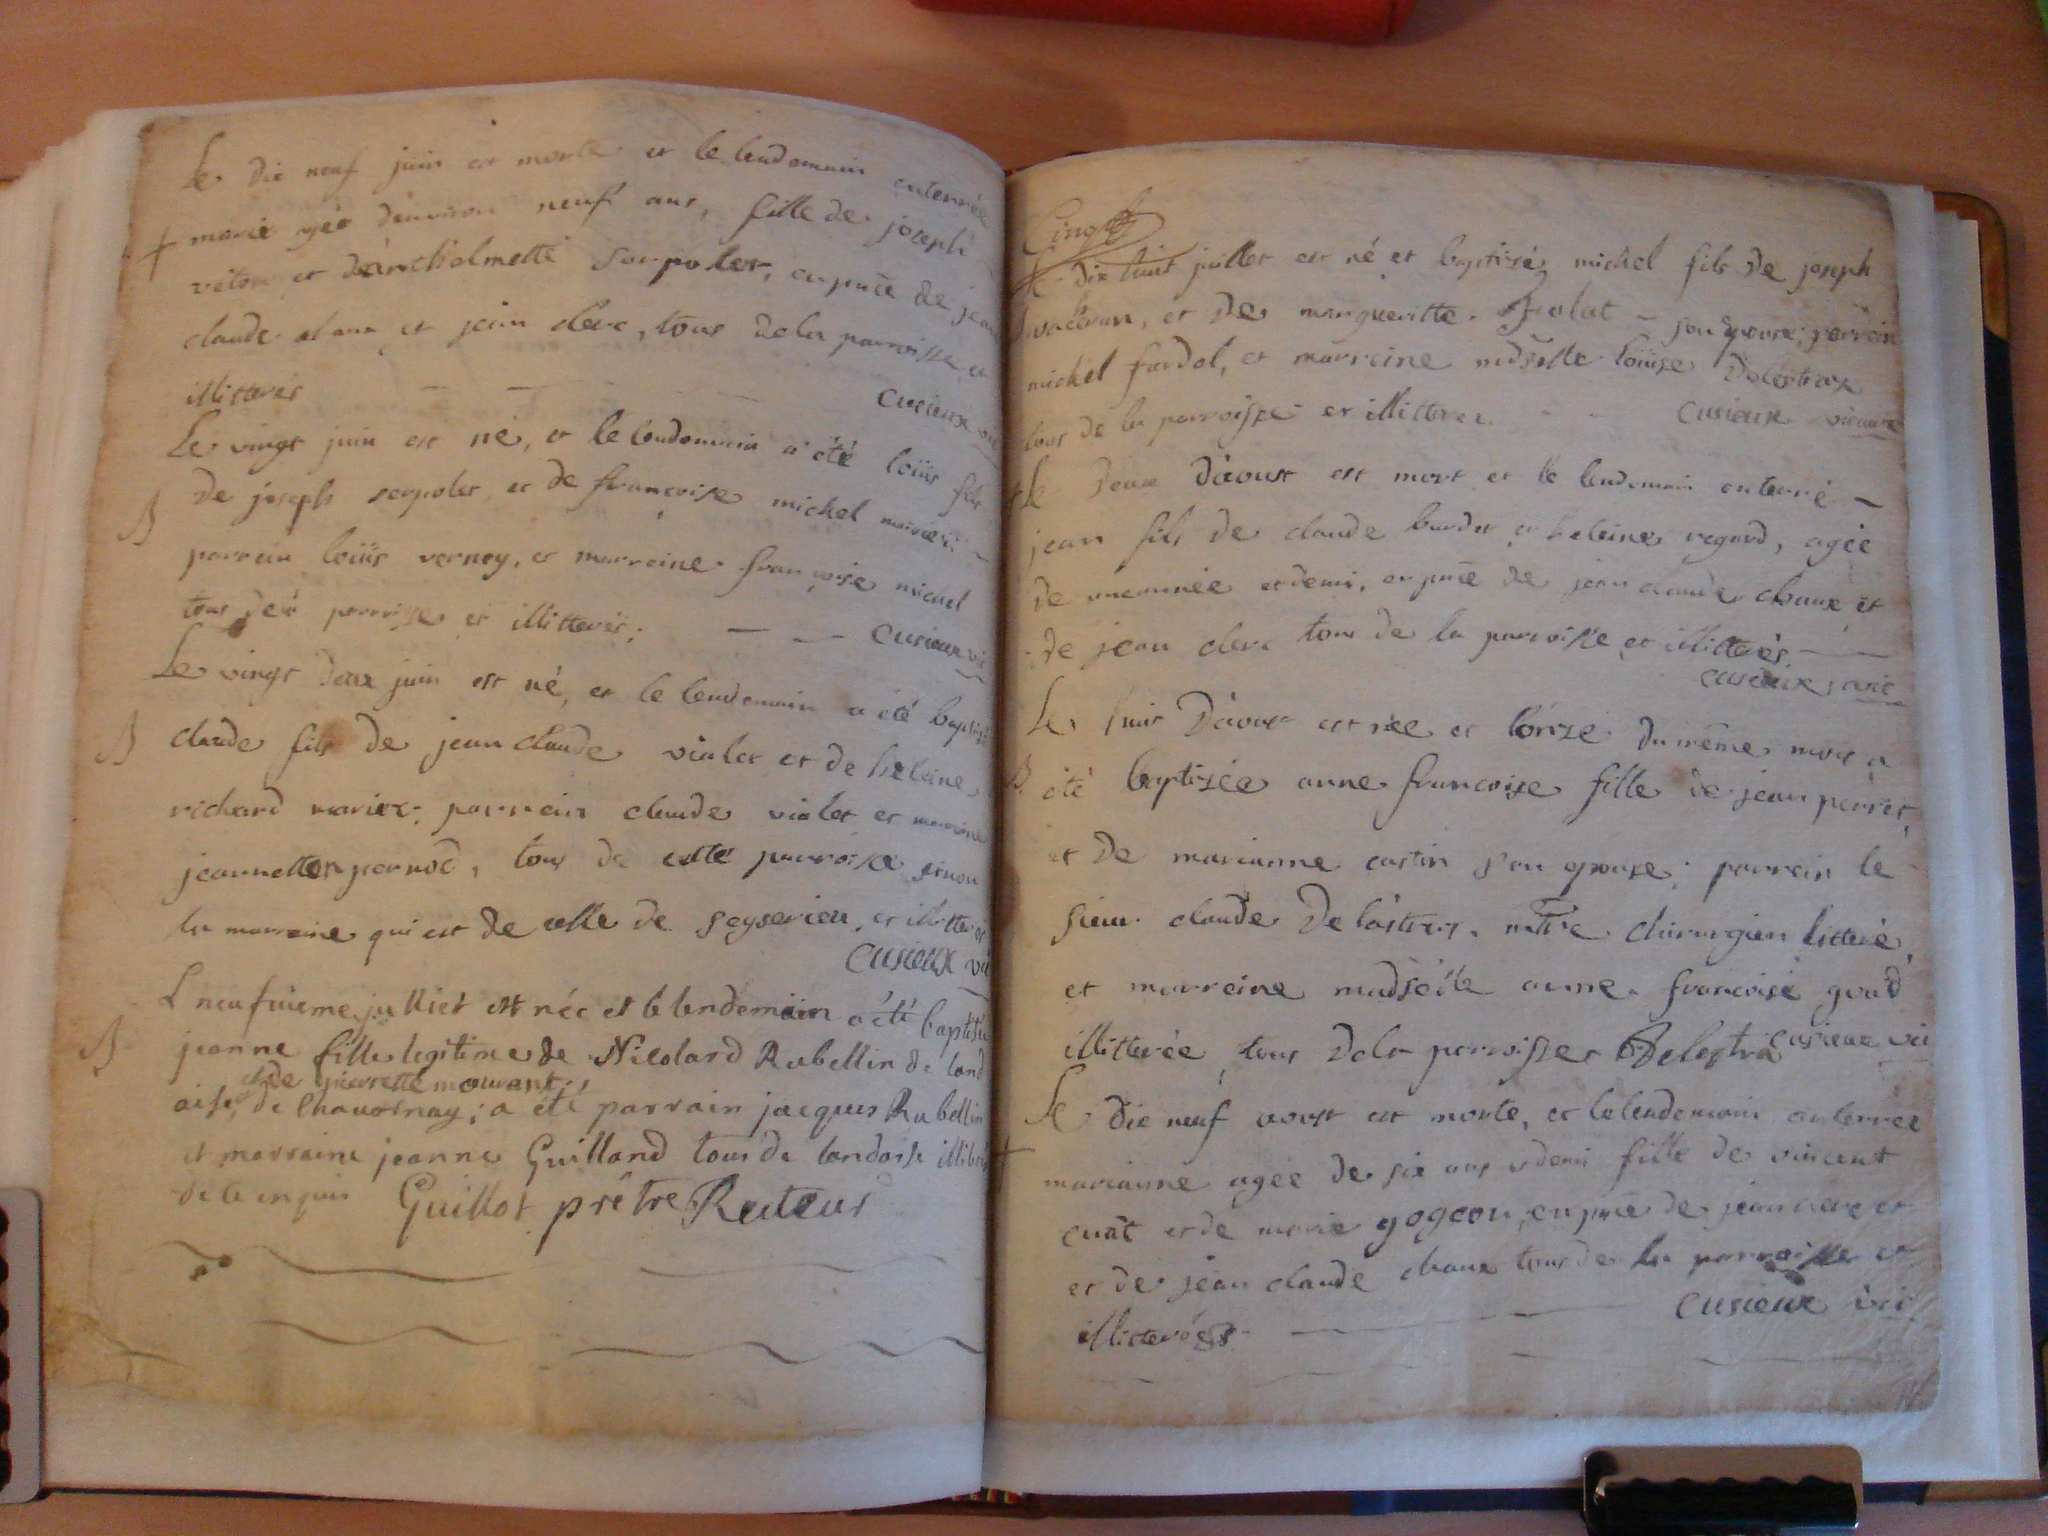 Le dix neuf juin est morte et le lendemain enterrée
marie agée d'environ neuf ans, fille de joseph
et serpolet, en pnce de jean
claude chaux et jean clerc, tous dela parroisse et
illitterés
Cusieux vic
Le vingt juin est né, et le lendemain a été loüis fils
B De joseph serpolet et de françoise michel mariez;
parrein loüis vernay, et marreine françoise michel
tous de parroisse et illitterés;
Cusieux vic
Le vingt deux juin est né, et le lendemain a été baptisé
B claude fils de jean claude violet et de heleine
richard mariez; parrein claude violet et marreine
jeannetton pernod, tous de cette parroisse sinon
la marreine qui est de celle de seyserieu, et illitterés
Cusieux vic
L neufuieme julliet est née et le lendemain a été baptisée
B jeanne fille legitime de Nicolard Rubellin de land
et de pierrette mouvant
aise, de Chavornay; a été parrain jacques Rubellin
et marraine jeanne Guilland tous de landaise illiterés
de ce enquis Guillot prêtre Recteur
Cinq
Le dix huit juillet est né et baptisé michel fils de joseph
et de margueritte son epouse; parrein
michel fardel, et marreine madselle loüise Delestraz
tous de la parroisse et illitteres
Cusieux vicaire
Le deux d'aoust est mort et le lendemain enterré
jean fils de claude burdet et heleine regard, agée
de une année et demi, en pnce de jean claude chaux et
de jean clerc tous de la parroisse et illitterés.
Cusieux, vic
Le huit d'aoust est née et l'onze du même mois a
B. été baptisée anne françoise fille de jean perret,
et De marianne castin son epouse; parrein le
sieur claude Delastraz, mtre chirurgien litteré,
et marreine madselle anne françoise goud
illitterée, tous dela parroisse Delestra Cusieux vic
Le dix neuf aoust est morte, et le lendemain enterree
marianne agée de six ans et demi fille de vincent
cuât et de marie gogeon, en pnce de jean clerc et
et de jean claude chaux tous de la parroisse et
illitterés
Cusieux vic